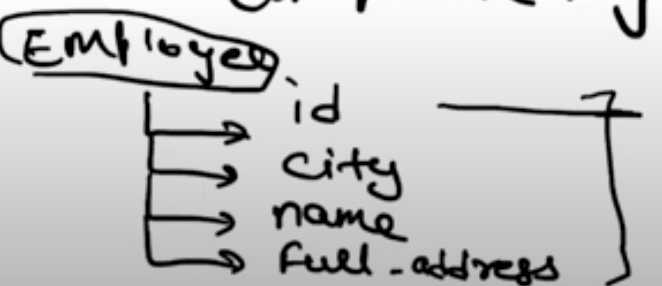 Employee
id
city
name
full_address